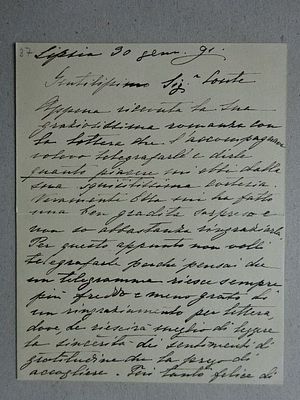 87
Lipsia 30 genn. 91.
Gentilissimo Sig.r Conte
Appena ricevuta la sua
graziosissima romanza con
la lettera che l'accompagnava
volevo telegrafarle e dirle
quanto piacere mi ebbi dalla
sua squisitissima cortesia.
Veramente Ella mi ha fatto
una ben gradita sorpresa e
non so abbastanza ringraziarla.
Per questo appunto non volli
telegrafarle perchè pensai che
un telegramma riesce sempre
più freddo e meno grato di
un ringraziamento per lettera,
dove le riescirà meglio di leggere
la sincerità dei sentimenti di
gratitudine che la prego di
accogliere. Fui tanto felice di